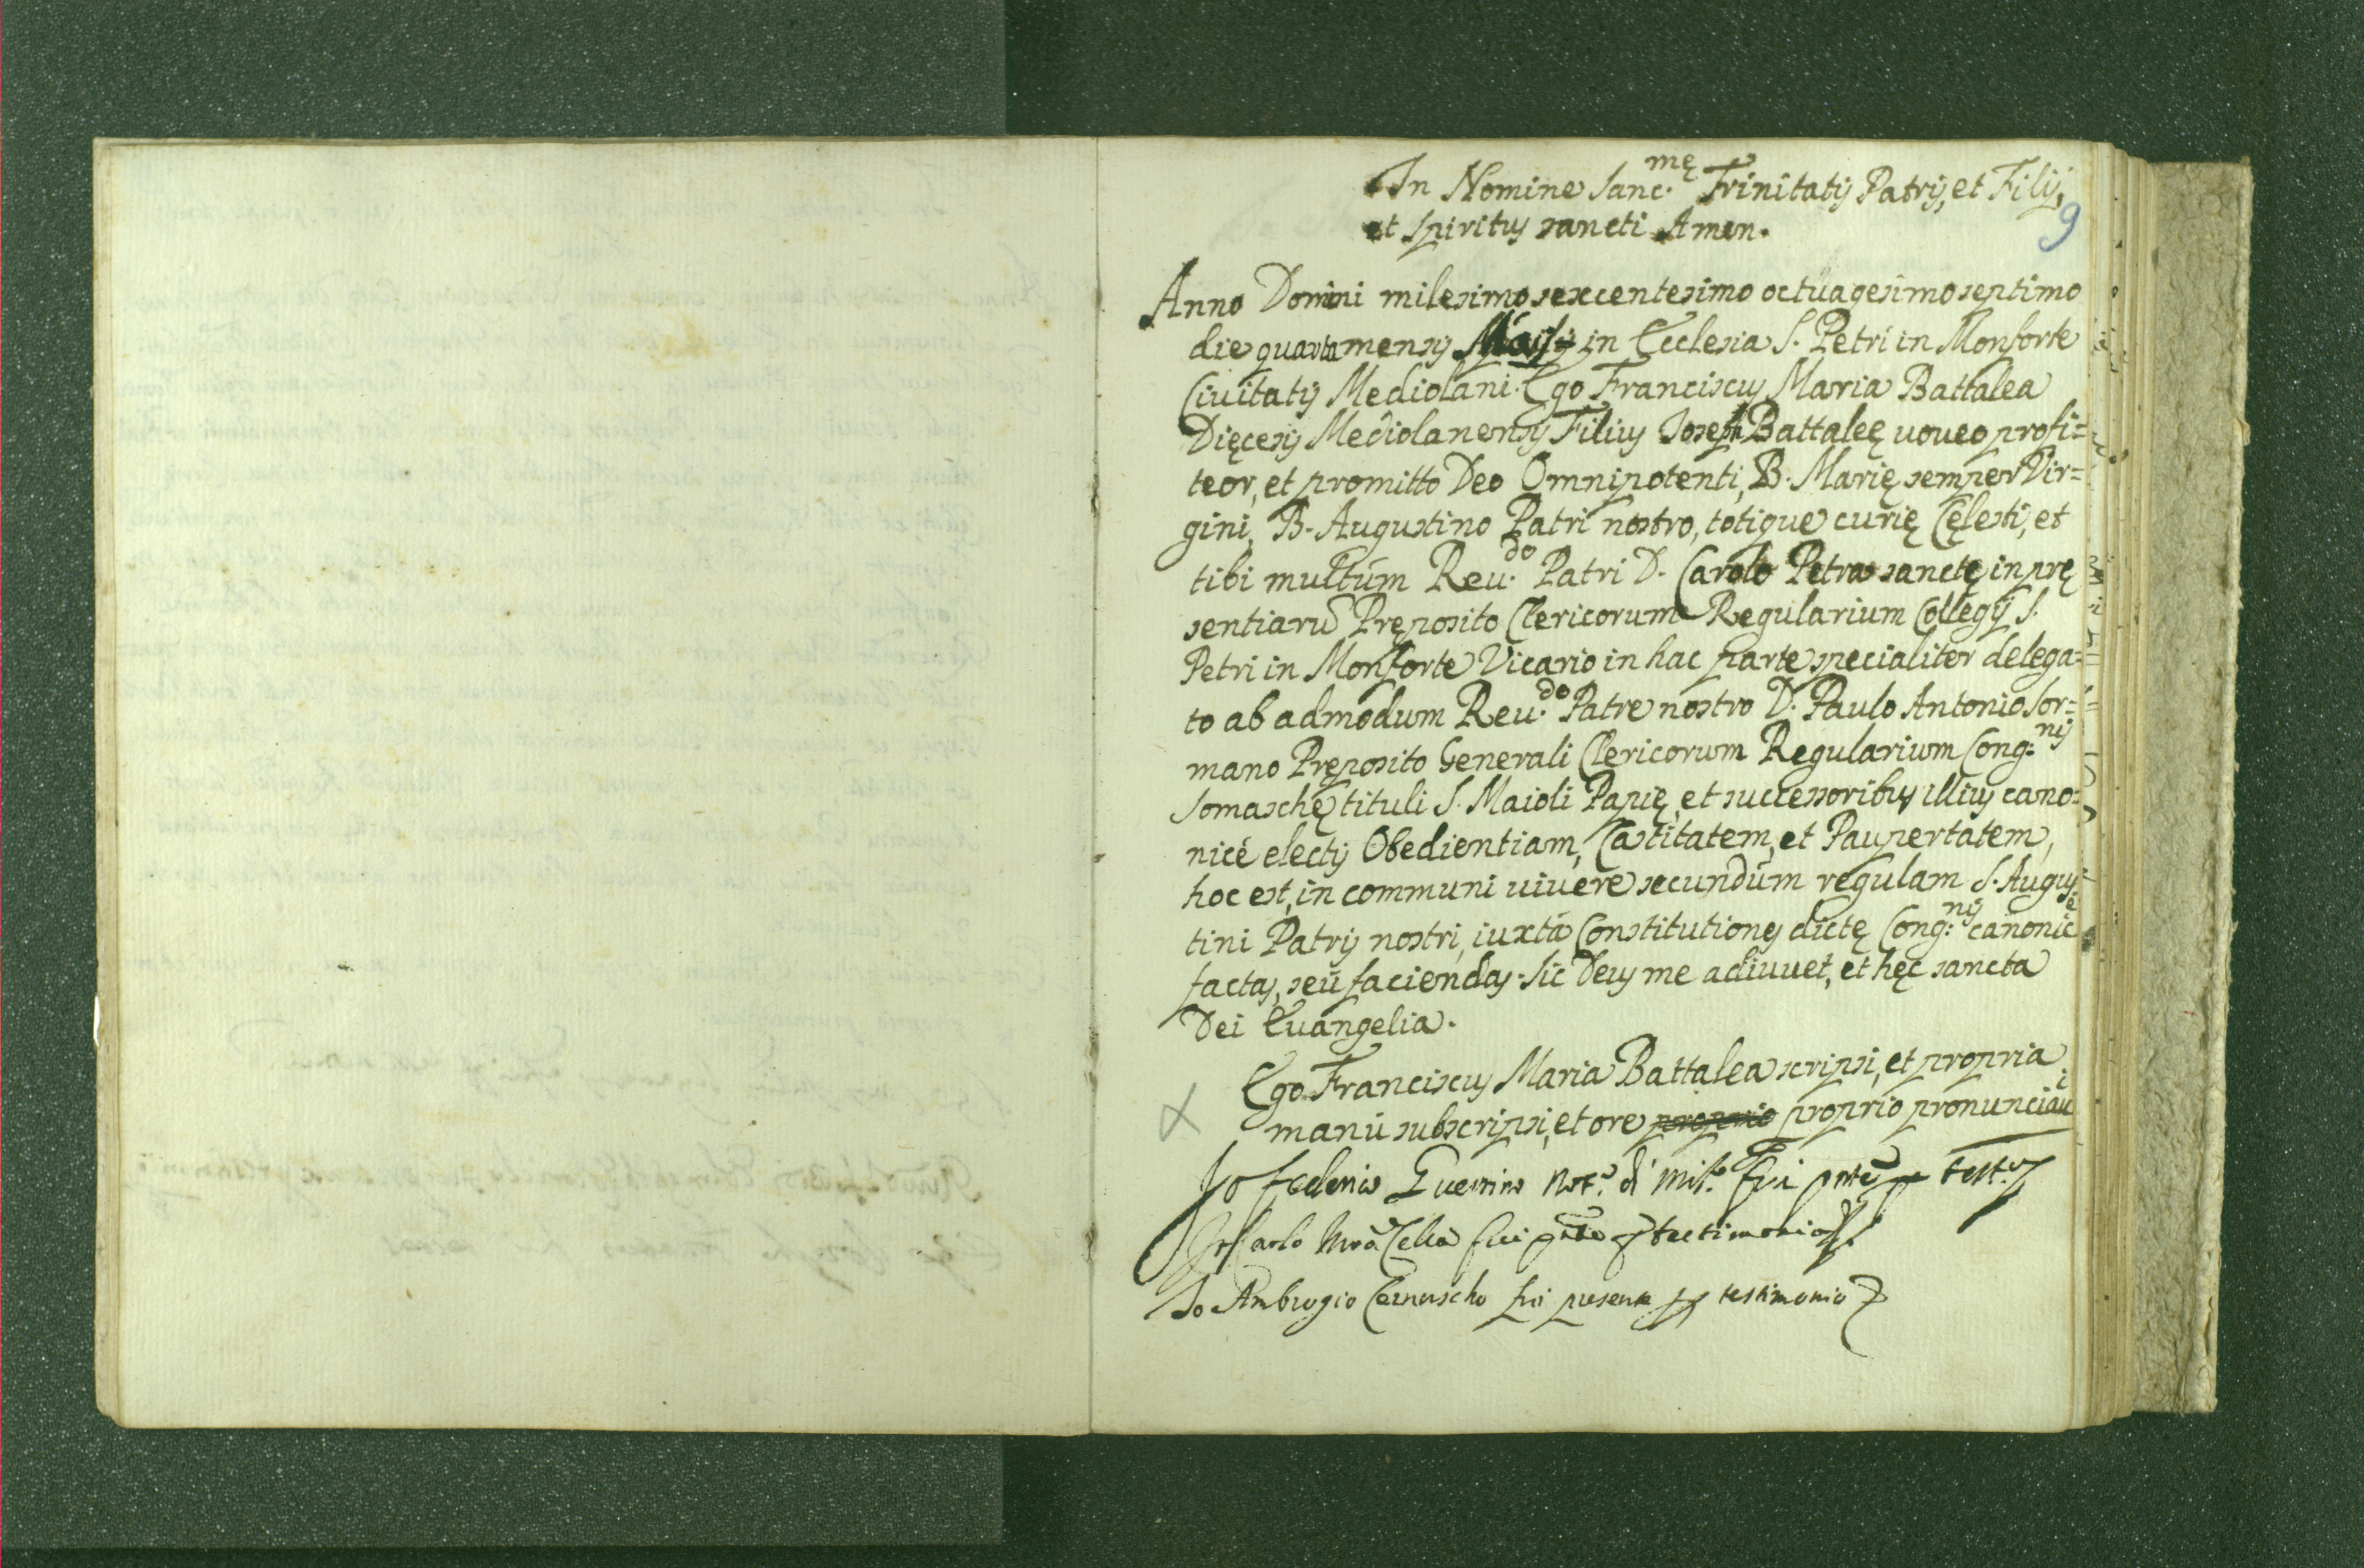 In Nomine Sanc.mę Trinitatis Patris, et Filij,
et Spiritus sancti Amen.
9
Anno Domini milesimo sexcentesimo octuagesimo septimo
die quarta mensis Maij in Ecclesia S. Petri in Monforte
Ciuitatis Mediolani. Ego Franciscus Maria Battalea
Dięcesis Mediolanensis Filius Joseph Battaleę uoueo profi=
teor, et promitto Deo Omnipotenti, B. Marię semper Vir=
gini, B. Augustino Patri nostro, totique curię Cęlesti, et
tibi multúm Reu.do Patri D. Carolo Petra sanctę in prę
sentiarũ Pręposito Clericorum Regularium Collegij S.
Petri in Monforte Vicario in hac parte specialiter delega=
to ab admodum Reu.do Patre nostro D. Paulo Antonio Sor=
mano Pręposito Generali Clericorum Regularium Cong:nis
Somaschę tituli S. Maioli Papię, et successoribus illius cano=
nicé electis Obedientiam, Castitatem, et Paupertatem,
hoc est, in communi uiuere secundúm regulam S. Augus=
tini Patris nostri, iuxtá Constitutiones dictę Cong:nis canonicé
factas, seú faciendas. Sic Deus me adiuuet, et hęc sancta
Dei Euangelia.
Ego Franciscus Maria Battalea scripsi, et propria
manú subscripsi, et ore proprio proprio pronunciaui
Io Federico Guerrino Not.o di Mil.o fui pnte p test.o
Io Carlo Mrâ Cella fui pnte p testimonio
Io Ambrogio Cernuscho fui presente p testimonio